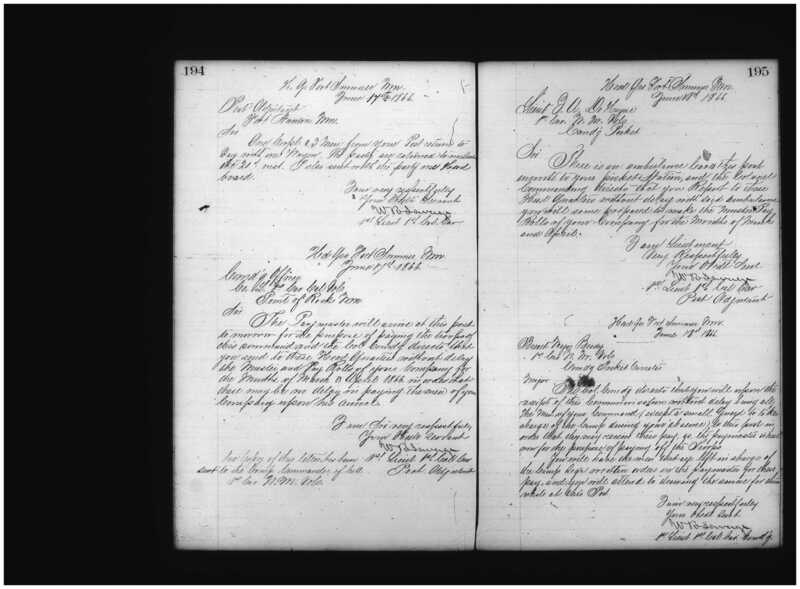 194
Hd Qrs Fort Sumner N.M.
June 17th 1866
Post Adjutant
Fort N.M.
Sir
One Corpl & 3 men from your Post return to
day with one Wagon. The party are rationed to include
the 21st inst.
board.
I am very respectfully
Your Obdt Servant
1st Lieut 1st Cal. Cav
Hd Qrs Fort Sumner N.M.
June 17th 1866
Comd'g Officer
Co. 1st Cav Cal Vols
Point of Rock N.M.
Sir
The Paymaster will arrive at this post
to-morrow for the purpose of paying the troops of
this command and the Col. Comdg directs that
you send to these Head Quarters without delay
the Muster and Pay Rolls of your Company for
the Months of March & April 1866 in order that
there may be no delay in paying the men of your
Company upon his arrival.
I am Sir very respectfully
Your Obdt Servant
1st Lieut 1st Cal Cav
Post Adjutant
copy of this letter has been
sent to the Comp. Commander of
1st Cav N.M. Vols
195
Head Qrs Fort Sumner N.M.
June 18th 1866
Lieut
1st Cav. N. M. Vols
Picket
Sir
There is an ambulance leaving this post
to your picket Station, and the Colonel
Commanding directs that you Report to these
Head Quarters without delay with said ambulance
you will come prepared to make the Muster & Pay
Rolls of your Company for the Months of March
and April.
I am Lieutenant
Very Respectfully
Your Obdt Servt
1st Lieut 1st Cal Cav
Post Adjutant
Head Qrs Fort Sumner N.M.
June 18th 1866
Brevet Major
1st Cav N. M. Vols
Comdg Picket
Major
The Col Comdg directs that you will upon the
receipt of this Communication without delay bring all
the Men of your Command (except a small Guard to take
charge of the Camp during your absence), to this post in
order that they may receive their pay, as the paymaster is here
now for the purpose of paying off the Troops
You will have the men that are left in charge of
the Camp sign written orders on the paymaster for their
pay, and you will attend to drawing the same for them
while at this Post.
I am very respectfully
Your Obdt Servt
1st Lieut 1st Cal Cav